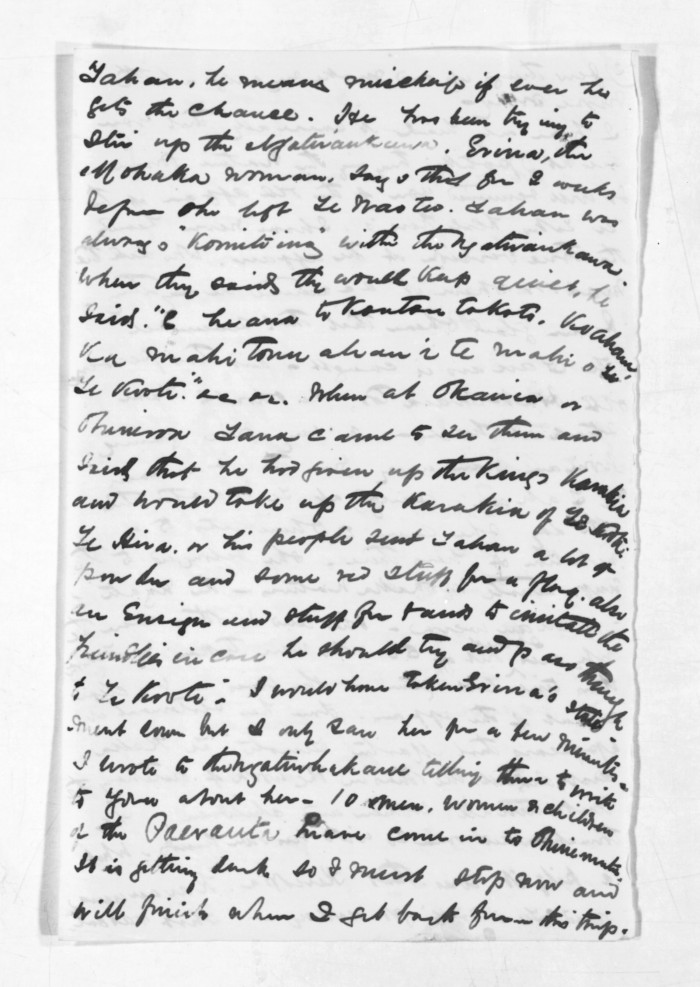 Tahau, he means mischief if ever he
gets the chance. He has been trying to
stir up the Ngatiraukawa. Erina, the
Mohaka woman, says that for 2 weeks
before she left Te Wastes. Tahau was
always "Komitiing" with the Ngatiraukawa
when they said they would keep quiet, he
said. "E he ana to Koutou
Ka mahi tonu ahau i te mahi o Te
Kooti." &c &c. When at Okauia or
Tana came to see them and
said that he had given up the Kings Karakia
and would take up the Karakia of Te Kooti.
Te Hira. or his people sent Tahau a lot of
powder and some red stuff for a flag. also
an Ensign and stuff for bands to imitate the
friendlies in case he should try and pass through
to Te Kooti". I would have taken Erina's state
ment down but I only saw her for a few minutes -
I wrote to the Ngatiwhakaue telling them to write
to you about her - 10 men, women & children
of the have come in to Ohinemutu.
It is getting dark so I must stop now and
will finish when I get back from this trip.